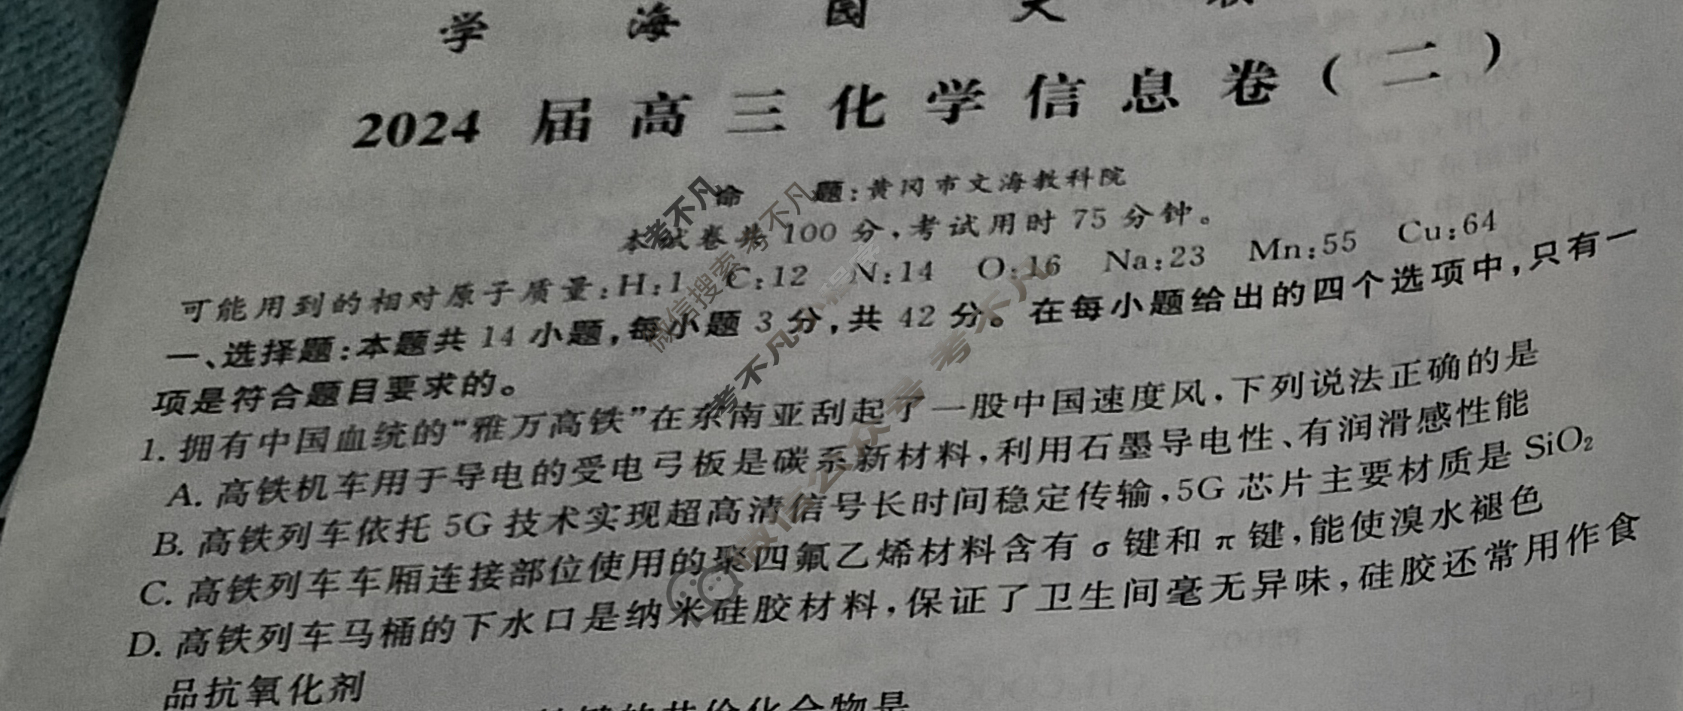 学 海 园 大 联
2024 届高三化学信息卷(二)
命 题:黄冈市文海教科院
本试卷共 100 分,考试用时 75 分钟。
可能用到的相对原子质量:H:1 C:12 N:14 O:16 Na:23 Mn:55 Cu:64
一、选择题:本题共 14 小题,每小题 3 分,共 42 分。在每小题给出的四个选项中,只有一
项是符合题目要求的。
1. 拥有中国血统的“雅万高铁”在东南亚刮起了一股中国速度风,下列说法正确的是
A. 高铁机车用于导电的受电弓板是碳系新材料,利用石墨导电性、有润滑感性能
B. 高铁列车依托 5G 技术实现超高清信号长时间稳定传输,5G 芯片主要材质是 SiO₂
C. 高铁列车车厢连接部位使用的聚四氟乙烯材料含有 σ 键和 π 键,能使溴水褪色
D. 高铁列车马桶的下水口是纳米硅胶材料,保证了卫生间毫无异味,硅胶还常用作食
品抗氧化剂
键的共价化合物是
考不凡
微信搜索考不凡
考不凡
微信公众号 考不凡